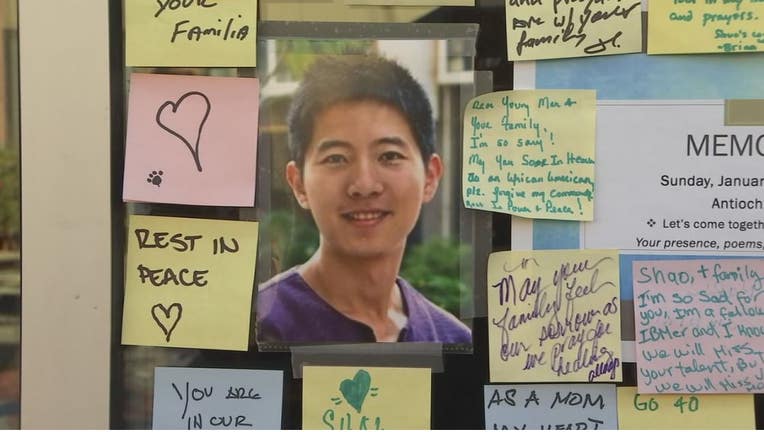 YOUR
FAMILIA
REST IN
PEACE
YOU ARE
IN OUR
and prayers
family
and prayers.
Dear Young Men &
Your family!
I'm so sorry!
May You Soar In Heaven
As an African American,
plz. forgive my Community
Rest In Power + Peace!
MEMO
Sunday, Januar
Antioch
❖ Let's come togeth
Your presence, poems,
May your
family feel
our sorrow as
we pray for
healing
always
Shao, + family
I'm so Sad for
you, Im a fellow
IBMer and I know
we will Miss
your talent, But
we will Miss
AS A MOM
MY HEART
GO 40